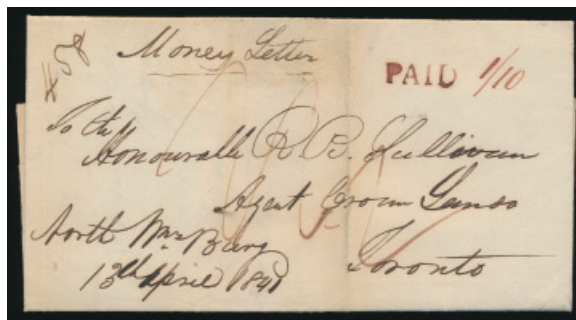 #58
Money Letter
PAID 1/10
To the
Honourable R. B. Sullivan
Agent Crown Lands
Toronto
North
13th April 1841